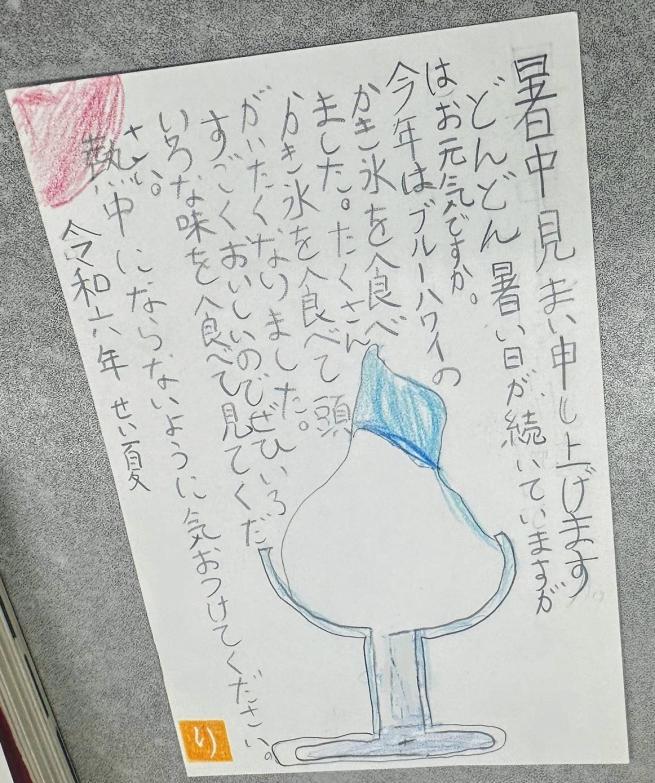 暑中見まい申し上げます
どんどん暑い日が続いていますが
はお元気ですか。
今年はブルーハワイの
かき氷を食べ
ました。たくさん
かき氷を食べて頭
がいたくなりました。
すごくおいしいのでぜひいろ
いろな味を食べて見てくだ
さい。
熱中にならないように気おつけてください。
令和六年 せい夏
り